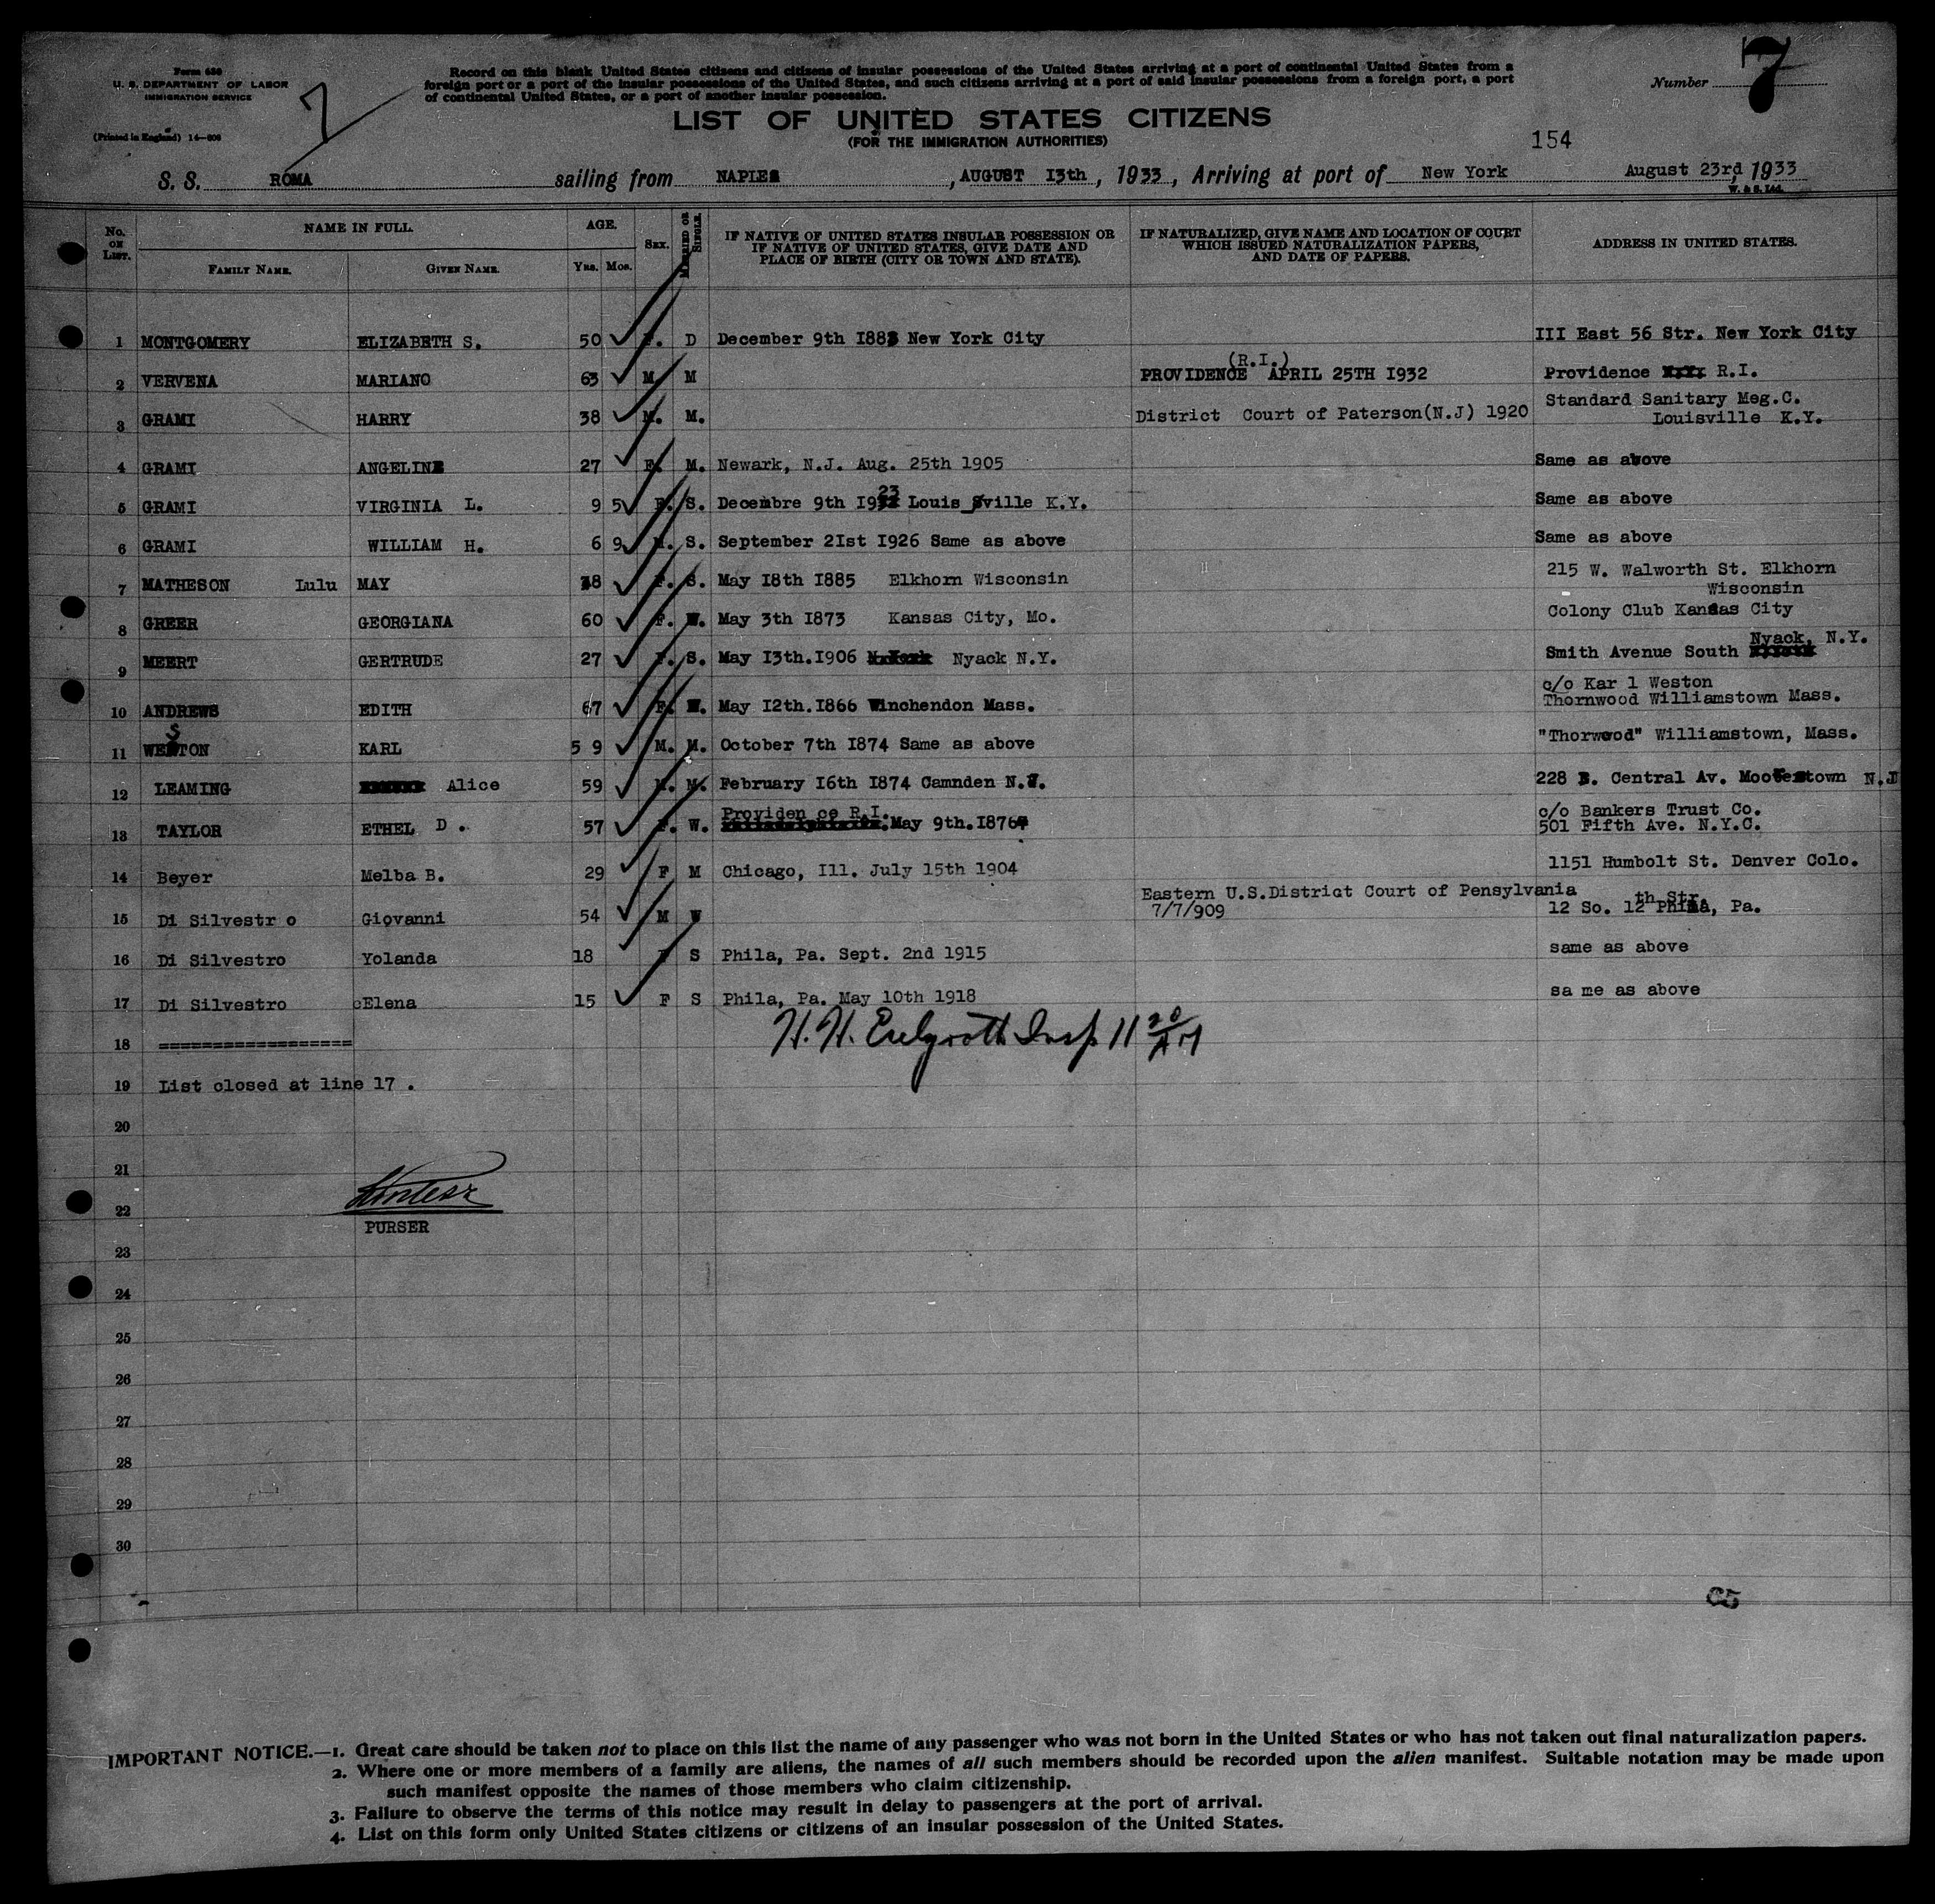 Form 630
U. S. DEPARTMENT OF LABOR
IMMIGRATION SERVICE
(Printed in England) 14—608
7
Record on this blank United States citizens and citizens of insular possessions of the United States arriving at a port of continental United States from a
foreign port or a port of the insular possessions of the United States, and such citizens arriving at a port of said insular possessions from a foreign port, a port
of continental United States, or a port of another insular possession.
Number 7
LIST OF UNITED STATES CITIZENS
(FOR THE IMMIGRATION AUTHORITIES)
154
S. S. ROMA sailing from NAPLES, AUGUST I3th, 1933, Arriving at port of New York August 23rd, 1933
W. & S. Ltd.
No. ON LIST. NAME IN FULL. AGE. SEX. MARRIED OR SINGLE. IF NATIVE OF UNITED STATES INSULAR POSSESSION OR IF NATIVE OF UNITED STATES, GIVE DATE AND PLACE OF BIRTH (CITY OR TOWN AND STATE). IF NATURALIZED, GIVE NAME AND LOCATION OF COURT WHICH ISSUED NATURALIZATION PAPERS, AND DATE OF PAPERS. ADDRESS IN UNITED STATES.
FAMILY NAME. GIVEN NAME. Yrs. Mos.
1 MONTGOMERY ELIZABETH S. 50 F. D December 9th I883 New York City III East 56 Str. New York City
2 VERVENA MARIANO 63 M. M PROVIDENCE (R.I.) APRIL 25TH I932 Providence R.I.
3 GRAMI HARRY 38 M. M. District Court of Paterson(N.J) 1920 Standard Sanitary Meg.C. Louisville K.Y.
4 GRAMI ANGELINE 27 F. M. Newark, N.J. Aug. 25th 1905 Same as above
5 GRAMI VIRGINIA L. 9 5 F. S. Decembre 9th I923 Louis ville K.Y. Same as above
6 GRAMI WILLIAM H. 6 9 M. S. September 2Ist I926 Same as above Same as above
7 MATHESON Lulu MAY 48 F. S. May I8th I885 Elkhorn Wisconsin 215 W. Walworth St. Elkhorn Wisconsin
8 GREER GEORGIANA 60 F. W. May 3th I873 Kansas City, Mo. Colony Club Kansas City
9 MEERT GERTRUDE 27 F. S. May I3th.I906 Nyack N.Y. Smith Avenue South Nyack, N.Y.
10 ANDREWS EDITH 67 F. W. May I2th.I866 Winchendon Mass. c/o Kar l Weston Thornwood Williamstown Mass.
11 WESTON KARL 5 9 M. M. October 7th I874 Same as above "Thorwood" Williamstown, Mass.
12 LEAMING Alice 59 M. February I6th I874 Camnden N.J. 228 E. Central Av. Moorestown N.J
13 TAYLOR ETHEL D . 57 F. W. Providen ce R.I. May 9th.I876 c/o Bankers Trust Co. 501 Fifth Ave. N.Y.C.
14 Beyer Melba B. 29 F M Chicago, Ill. July 15th 1904 1151 Humbolt St. Denver Colo.
15 Di Silvestr o Giovanni 54 M W Eastern U.S.District Court of Pensylvania 7/7/909 12 So. 12 th Str. Phila, Pa.
16 Di Silvestro Yolanda 18 F S Phila, Pa. Sept. 2nd 1915 same as above
17 Di Silvestro Elena 15 F S Phila, Pa. May 10th 1918 sa me as above
18 ==================
H. H. Insp 11 20/AM
19 List closed at line 17 .
20
21
22
PURSER
23
24
25
26
27
28
29
30
65
IMPORTANT NOTICE.—1. Great care should be taken not to place on this list the name of any passenger who was not born in the United States or who has not taken out final naturalization papers.
2. Where one or more members of a family are aliens, the names of all such members should be recorded upon the alien manifest. Suitable notation may be made upon
such manifest opposite the names of those members who claim citizenship.
3. Failure to observe the terms of this notice may result in delay to passengers at the port of arrival.
4. List on this form only United States citizens or citizens of an insular possession of the United States.